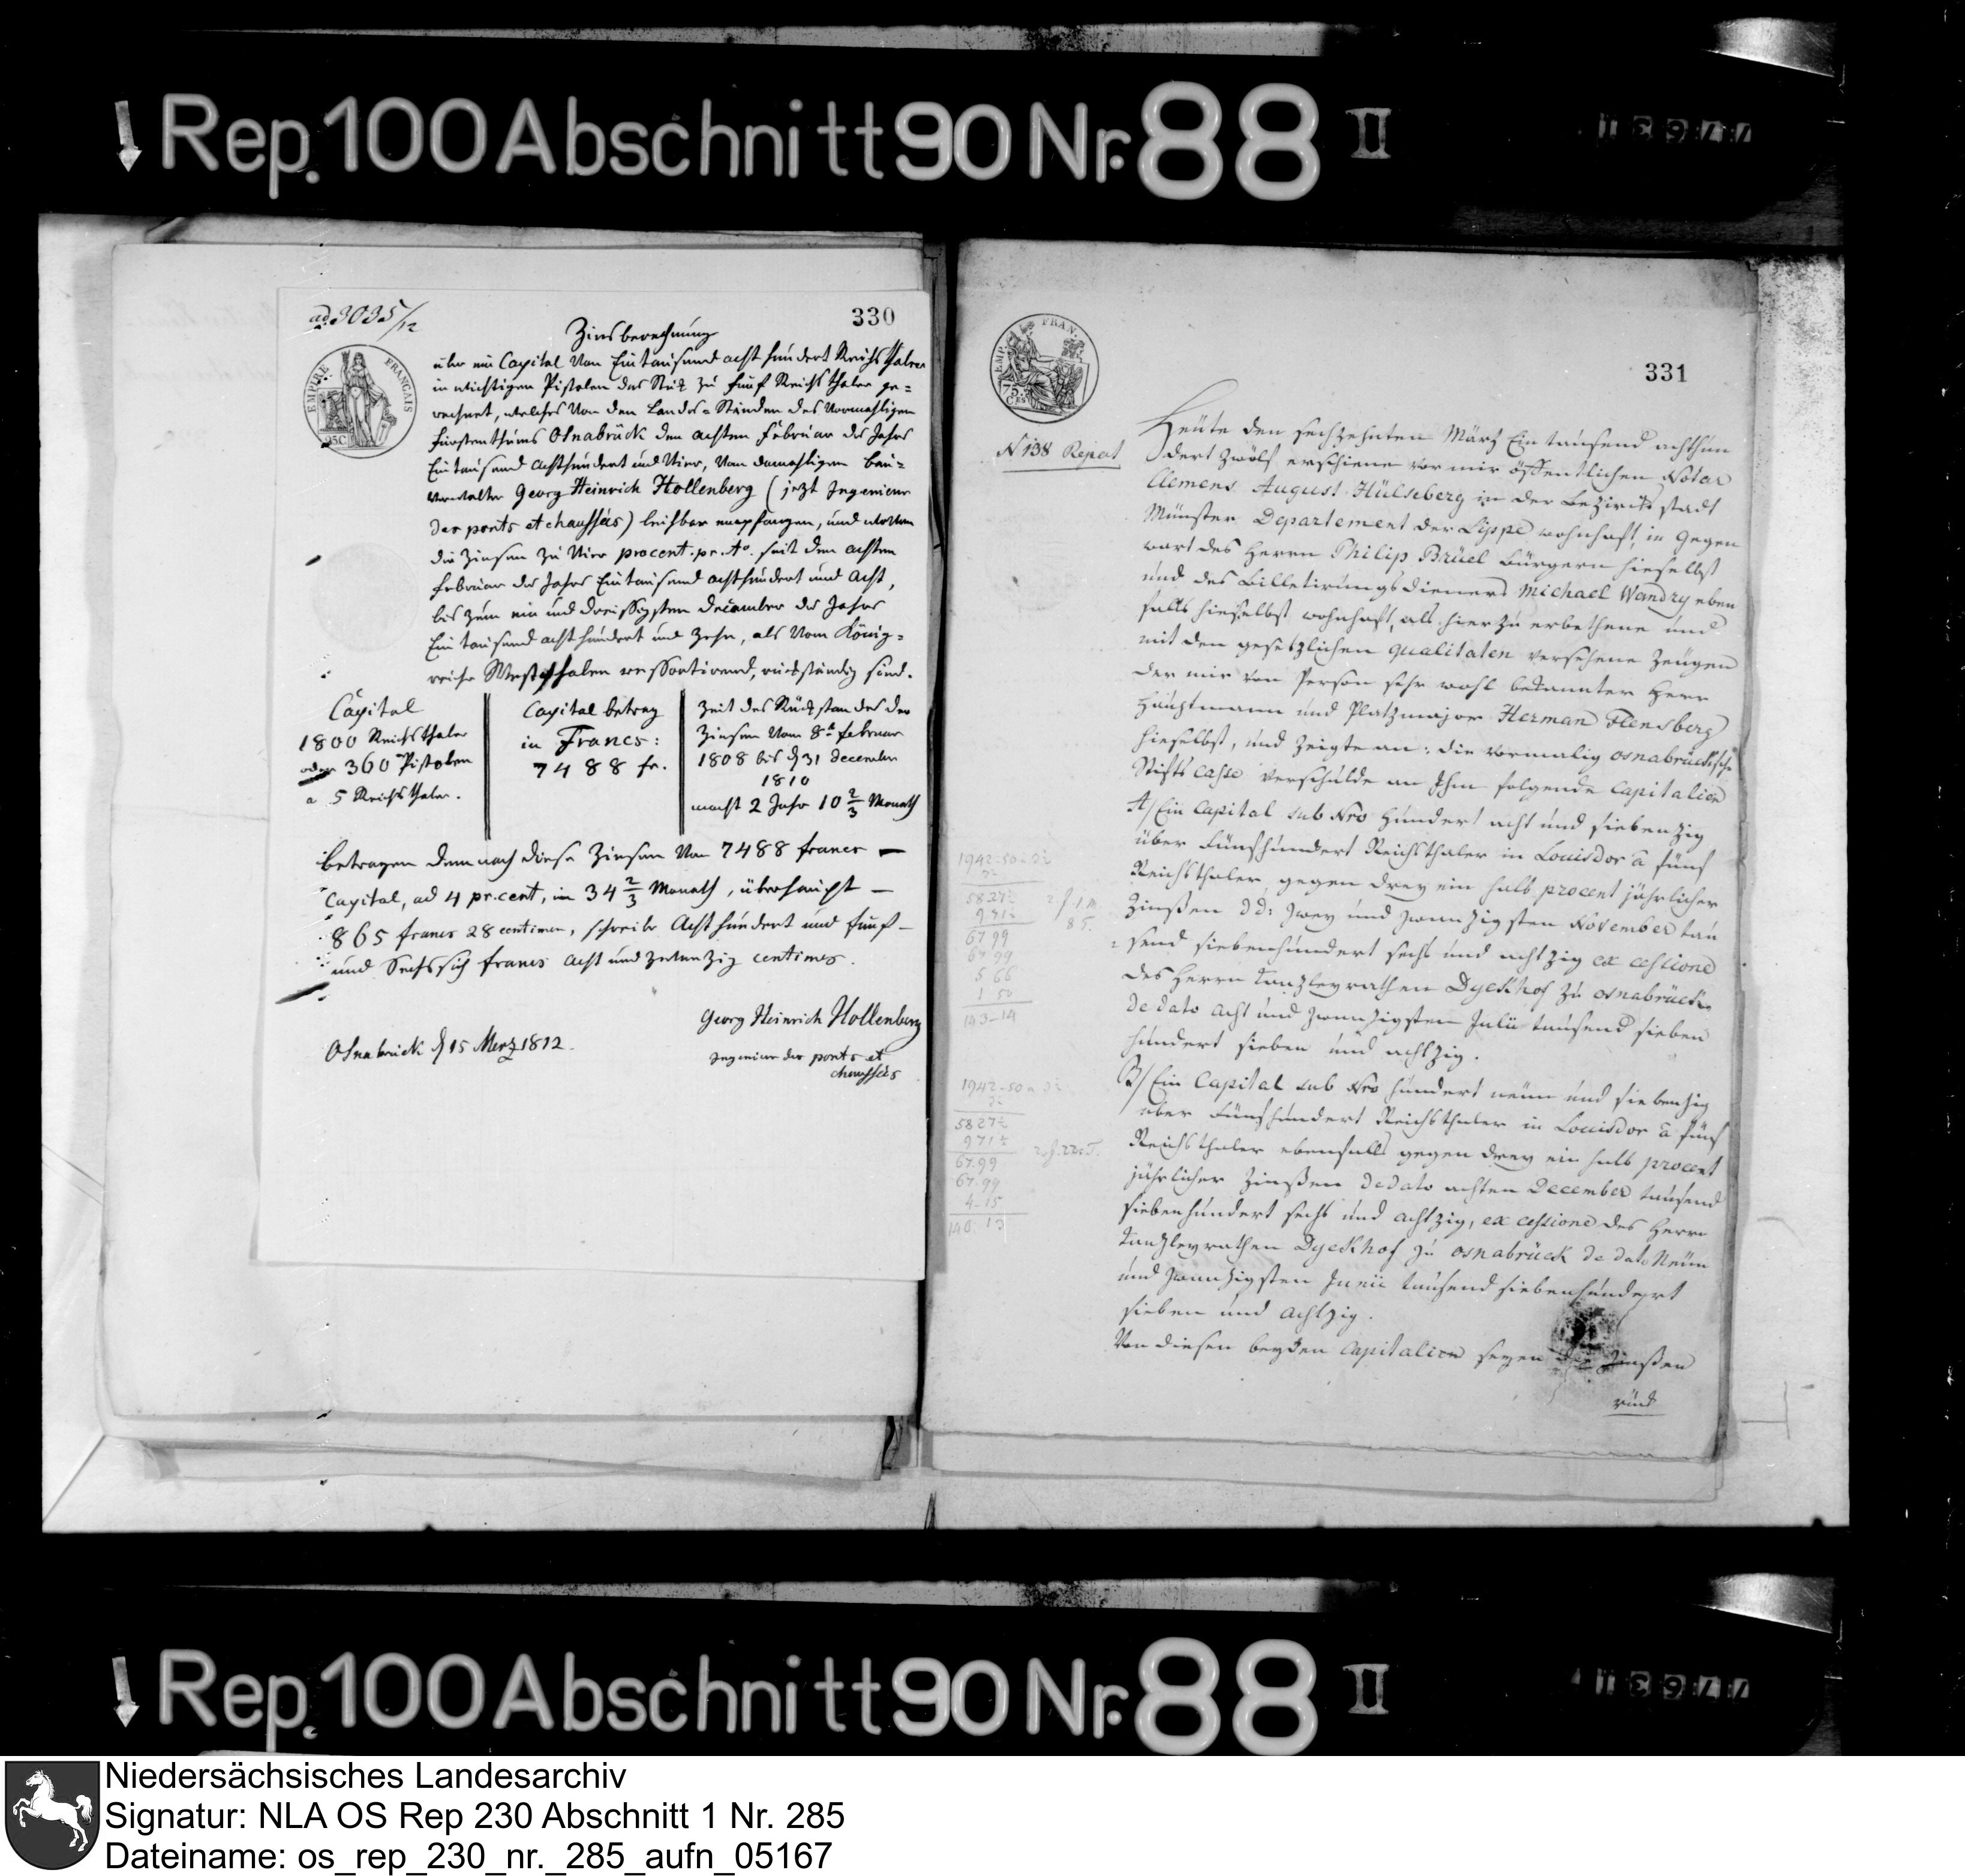 Rep. 100 Abschnitt 90 Nr. 88 II
ad 3035/12
330
Zinsberechnung
EMPIRE FRANÇAIS
25C
über ein Capital von Ein tausend acht hundert Reichsthaler
in wichtigen Pistolen das Stük zu fünf Reichsthaler ge=
rechnet, welches von den Landes=Ständen des vormahligen
Fürstenthums Osnabrück den achten Februar des Jahrs
Ein tausend achthundert und vier, vom damahligen Bau=
verwalter Georg Heinrich Hollenberg (jetzt Ingenieur
des ponts et chaussées) leihbar empfangen, und wovon
die Zinsen zu vier procent. pr. Ao. seit dem achten
Februar des Jahrs Ein tausend achthundert und acht,
bis zum ein und dreissigsten december des Jahrs
Ein tausend acht hundert und zehn, als vom König=
reiche Westphalen ressortirend, rückständig sind.
Capital
1800 Reichsthaler
oder 360 Pistolen
a 5 Reichsthaler.
Capital betrag
in Francs:
7488 fr.
Zeit des Rückstandes der
Zinsen vom 8ten Februar
1808 bis d 31 december
1810
macht 2 Jahr 10 2/3 Monath
Betragen demnach diese Zinsen von 7488 francs —
Capital, ad 4 pr. cent, in 34 2/3 Monath, überhaupt —
865 francs 28 centimen, schreibe Acht hundert und fünf —
und Sechssich francs acht und zwanzig centimes.
Georg Heinrich Hollenberg
Ingenieur des ponts et
chaussées
Osnabrück d 15 Merz 1812.
331
EMP. FRAN.
75
N 138 Repert
Heute den sechzehnten März Ein tausend achthun
dert zwölf erschiene vor mir öffentlichen Notar
Clemens August Hülseberg in der Bezirks stadt
Münster Departement der Lippe wohnhaft, in Gegen
wart des Herrn Philip Brüel Bürgern hieselbst
und des Billetirungs dieners Michael Wandry eben
falls hieselbst wohnhaft, als hierzu erbethene und
mit den gesetzlichen qualitaten versehene Zeugen
der mir von Person sehr wohl bekannter Herr
Hauptmann und Platzmajor Herman Flensberg
hieselbst, und zeigte an: die vormalig osnabrückische
Stifts casse verschulde an Ihm folgende Capitalien
A/ Ein Capital sub Nro Hundert acht und siebenzig
über Fünfhundert Reichsthaler in Louisdor a fünf
Reichsthaler gegen drey ein halb procent jährlicher
Zinßen dd: zwey und zwanzigsten November tau
send siebenhundert sechs und achtzig ex cessione
des Herrn Kanzleyrathen Dyckhof zu osnabrück
de dato acht und zwanzigsten Julii tausend sieben
hundert sieben und achtzig.
B/ Ein Capital sub Nro hundert neun und siebenzig
über Fünfhundert Reichsthaler in Louisdor a fünf
Reichsthaler ebenfalls gegen drey ein halb procent
jährlicher Zinßen de dato achten December tausend
siebenhundert sechs und achtzig, ex cessione des Herrn
Kanzleyrathen Dyckhof zu osnabrück de dato Neun
und zwanzigsten Junii tausend siebenhundert
sieben und achtzig.
Von diesen beyden Capitalien seyen die Zinßen
rück
1942-50
5827
971
67.99
67.99
5.66
1 50
143-14
1942-50
5827
971
67.99
67.99
4-15
140.13
Rep. 100 Abschnitt 90 Nr. 88 II
Niedersächsisches Landesarchiv
Signatur: NLA OS Rep 230 Abschnitt 1 Nr. 285
Dateiname: os_rep_230_nr._285_aufn_05167